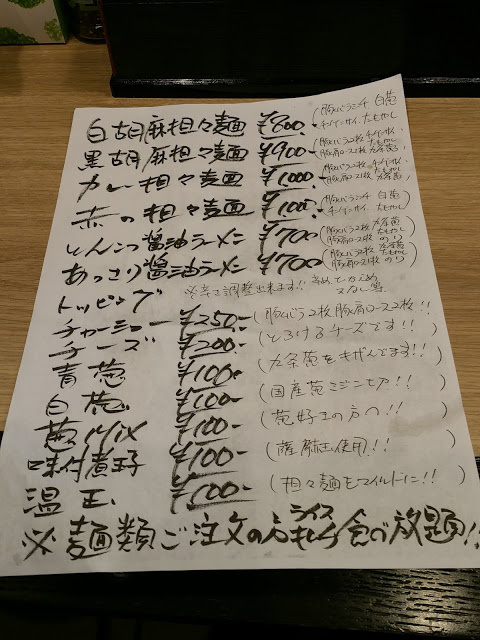 白胡麻担々麺 ¥800- (豚バラミンチ 白葱 チンゲンサイ たもやし)
黒胡麻担々麺 ¥900- (豚バラ2枚 チンゲンサイ 豚肩ロース2枚 九条葱)
カレー担々麺 ¥1,000- (豚バラ2枚 チンゲンサイ 豚肩ロース2枚)
赤の担々麺 (豚バラミンチ 白葱 チンゲンサイ)
とんこつ醤油ラーメン ¥700 (豚バラ2枚 九条葱 豚肩ロース2枚 のり)
あっさり醤油ラーメン ¥700 (豚バラ2枚 九条葱 豚肩ロース2枚 のり)
トッピング ※辛さ調整出来ます!!
チャーシュー ¥250- (豚バラ2枚 豚肩ロース2枚!!)
チーズ ¥200- (とろけるチーズです!!)
青葱 ¥100- (九条葱をきざんでます!!)
白葱 ¥100- (国産葱ミジン切り!!)
葱MIX ¥100- (葱好きの方へ!!)
味付煮玉子 ¥100- (薩摩玉使用!!)
温玉 ¥100- (担々麺をマイルドに!!)
※麺類ご注文の方ライスキムチ食べ放題!!